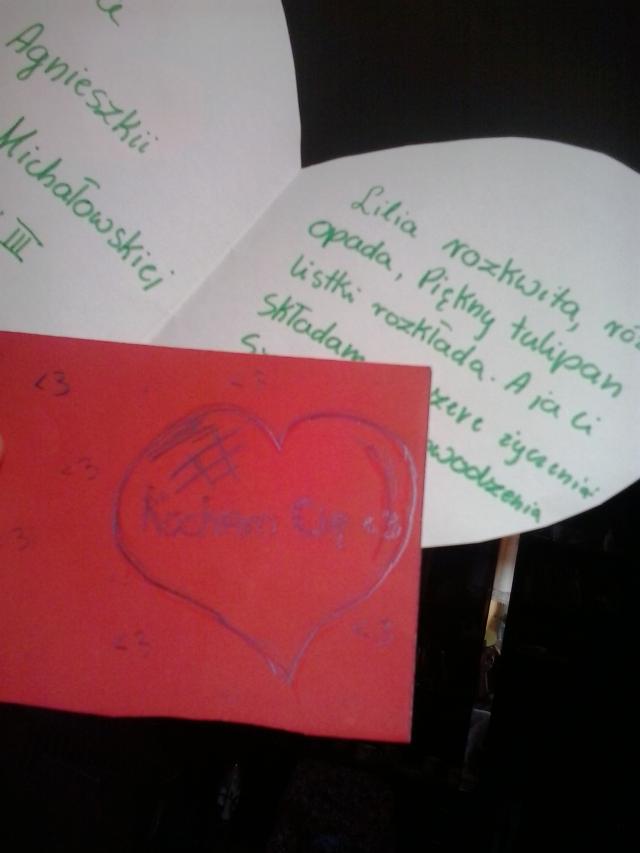 Agnieszkii
Michałowskiej
III
Lilia rozkwita, róż
opada, Piękny tulipan
listki rozkłada. A ja Ci
składam
życzenia
<3
<3
<3
Kocham Cię <3
<3
<3
<3